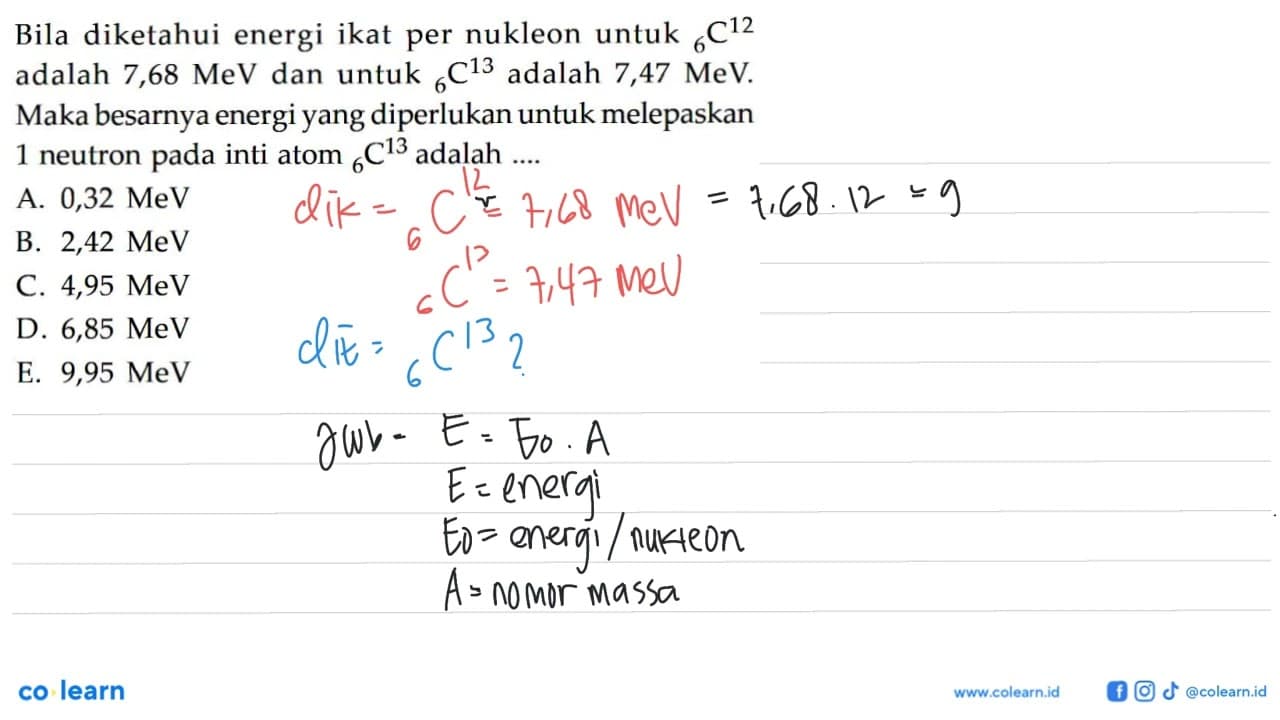 Bila diketahui energi ikat per nukleon untuk ₆C¹²
adalah 7,68 MeV dan untuk ₆C¹³ adalah 7,47 MeV.
Maka besarnya energi yang diperlukan untuk melepaskan
1 neutron pada inti atom ₆C¹³ adalah ....
A. 0,32 MeV
B. 2,42 MeV
C. 4,95 MeV
D. 6,85 MeV
E. 9,95 MeV
dik = ₆C¹² = 7,68 MeV = 7,68 . 12 = 9
₆C¹³ = 7,47 MeV
dit = ₆C¹³ ?
Jwb - E = Eo . A
E = energi
Eo = energi / nukleon
A = nomor massa
co learn
www.colearn.id @colearn.id